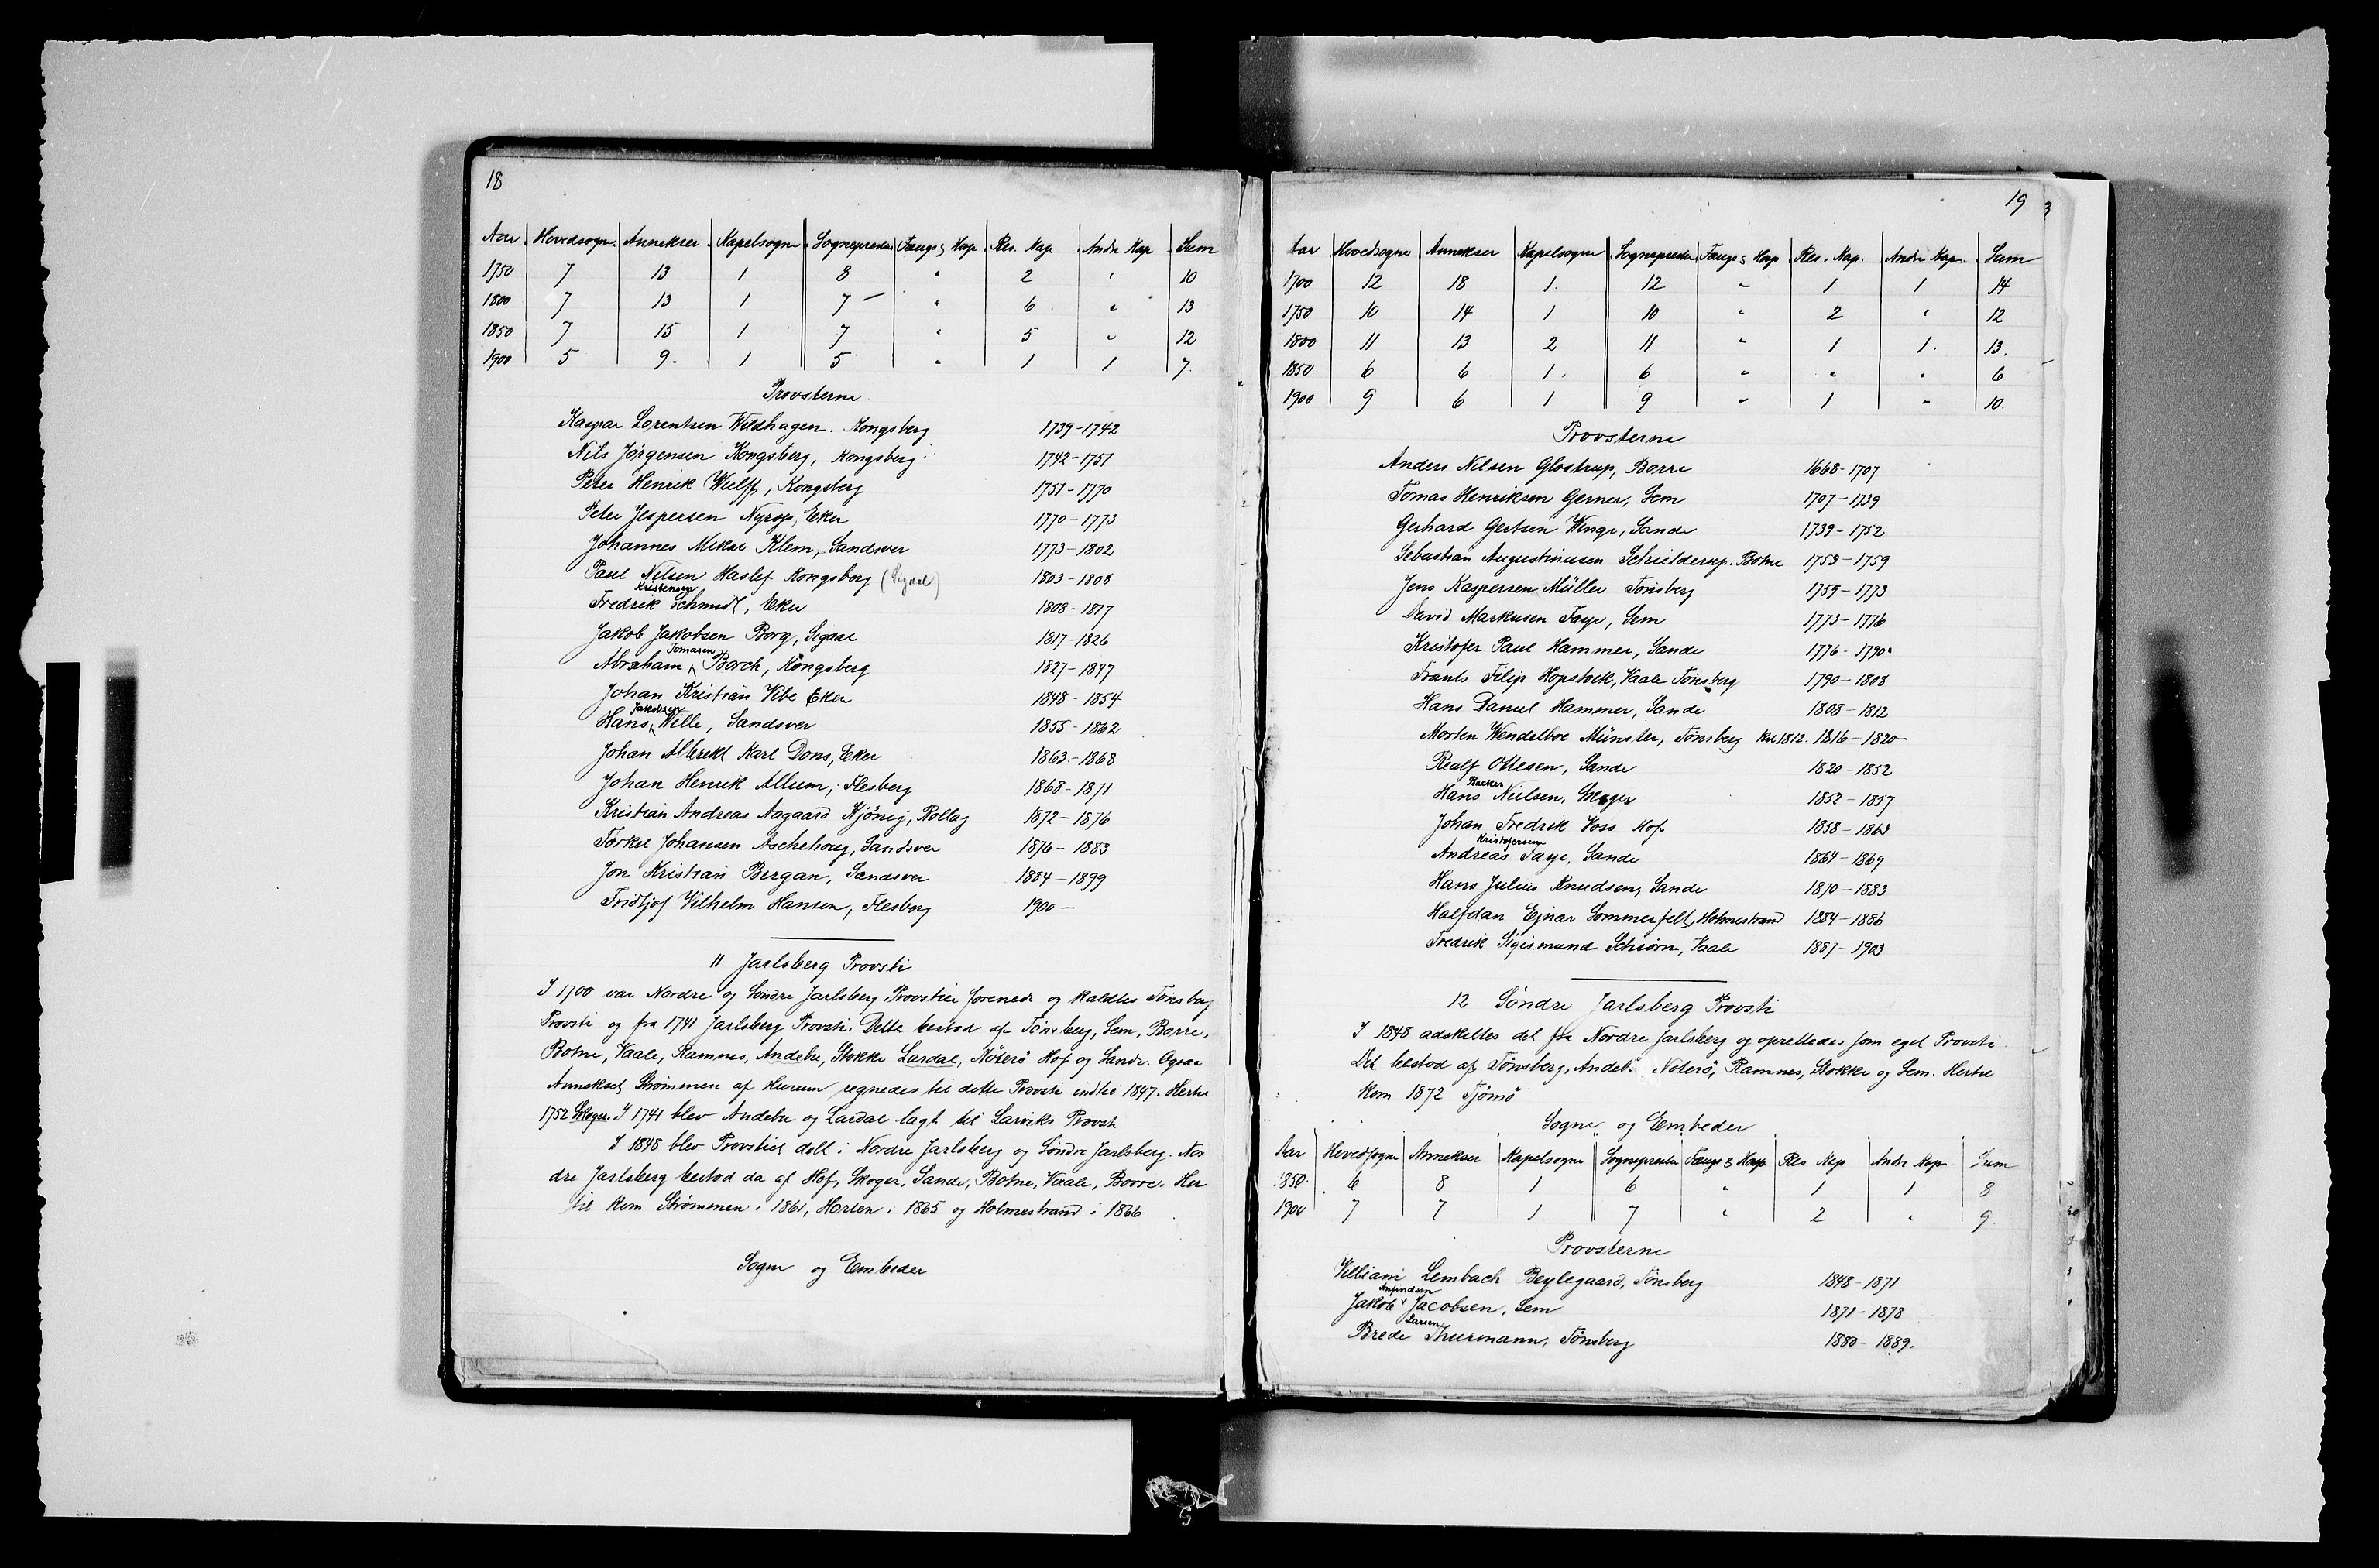 18
Aar Hovedsogne Annekser Kapelsogne Sogneprester Fængs & Hosp Res. Kap Andre Kap Sum
1750 7 13 1 8 " 2 " 10
1800 7 13 1 7 " 6 " 13
1850 7 15 1 7 " 5 " 12
1900 5 9 1 5 " 1 1 7
Provsterne
Kaspar Lorentsen Wildhagen. Kongsberg 1739-1742
Nils Jørgensen Kongsberg, Kongsberg 1742-1751
Peter Henrik Wulff, Kongsberg 1751-1770
Peter Jespersen Nyrop, Eker 1770-1773
Johannes Mikal Klem, Sandsver 1773-1802
Paul Nilsen Haslef Kongsberg (Sigdal) 1803-1808
Fredrik Kristensen Schmidt, Eker 1808-1817
Jakob Jakobsen Borg, Sigdal 1817-1826
Abraham Tomasen Borch, Kongsberg 1827-1847
Johan Kristian Vibe Eker 1848-1854
Hans Jakobsen Wille, Sandsver 1855-1862
Johan Albrekt Karl Dons, Eker 1863-1868
Johan Henrik Allum, Flesberg 1868-1871
Kristian Andreas Aagaard Kjönig, Rollag 1872-1876
Torkel Johansen Aschehoug, Sandsver 1876-1883
Jon Kristian Bergan, Sandsver 1884-1899
Fridtjof Vilhelm Hansen, Flesberg 1900-
11 Jarlsberg Provsti
I 1700 var Nordre og Söndre Jarlsberg Provstier forenede og kaldtes Tönsberg
Provsti og fra 1741 Jarlsberg Provsti. Dette bestod af Tönsberg, Sem, Borre,
Botne, Vaale, Ramnes, Andebu, Stokke Lardal, Nöterö Hof og Sande. Ogsaa
Annekset Strømmen af Hurum regnedes til dette Provsti indtil 1847. Hertil
1752 Skoger. I 1741 blev Andebu og Lardal lagt til Larviks Provsti
I 1848 blev Provstiet delt i Nordre Jarlsberg og Söndre Jarlsberg. Nor
dre Jarlsberg bestod da af Hof, Skoger, Sande, Botne, Vaale, Borre. Her
til kom Strømmen i 1861, Horten i 1865 og Holmestrand i 1866
Sogne og Embeder
19
Aar Hovedsogne Annekser Kapelsogne Sogneprester Fængs & Hosp Res. Kap. Andre Kap. Sum
1700 12 18 1. 12 " 1 1 14
1750 10 14 1 10 " 2 " 12
1800 11 13 2 11 " 1 1. 13.
1850 6 6 1. 6 " " " 6
1900 9 6 1 9 " 1 " 10.
Provsterne
Anders Nilsen Glostrup, Borre 1668-1707
Tomas Henriksen Gerner, Sem 1707-1739
Gerhard Gertsen Wenge, Sande 1739-1752
Sebastian Augustinusen Schielderup. Botne 1753-1759
Jens Kaspersen Müller Tönsberg 1759-1773
David Markusen Faye, Sem 1773-1776
Kristofer Paul Hammer, Sande 1776-1790
Frants Filip Hopstock, Vaale Tönsberg 1790-1808
Hans Daniel Hammer, Sande 1808-1812
Morten Wendelboe Münster, Tönsberg 1812. 1816-1820
Realf Ottesen, Sande 1820-1852
Hans Backer Nielsen, Skoger 1852-1857
Johan Fredrik Voss Hof 1858-1863
Andreas Kristofersen Faye, Sande 1864-1869
Hans Julius Knudsen, Sande 1870-1883
Halfdan Ejnar Sommerfelt, Holmestrand 1884-1886
Fredrik Sigismund Schiörn, Vaale 1887-1903
12 Söndre Jarlsberg Provsti
I 1848 adskiltes det fra Nordre Jarlsberg og oprettedes som eget Provsti.
Det bestod af Tönsberg, Andebu Nöterö, Ramnes, Stokke og Sem. Hertil
kom 1872 Tjömö
Sogne og Embeder
Aar Hovedsogne Annekser Kapelsogne Sogneprester Fængs & Hosp Res Kap Andre Kap Sum
1850 6 8 1 6 " 1 1 8
1900 7 7 1 7 " 2 " 9.
Provsterne
Villiam Lembach Beylegaard, Tönsberg 1848-1871
Jakob Anfindsen Jacobsen, Sem 1871-1878
Brede Larsen Thurmann, Tönsberg 1880-1889.